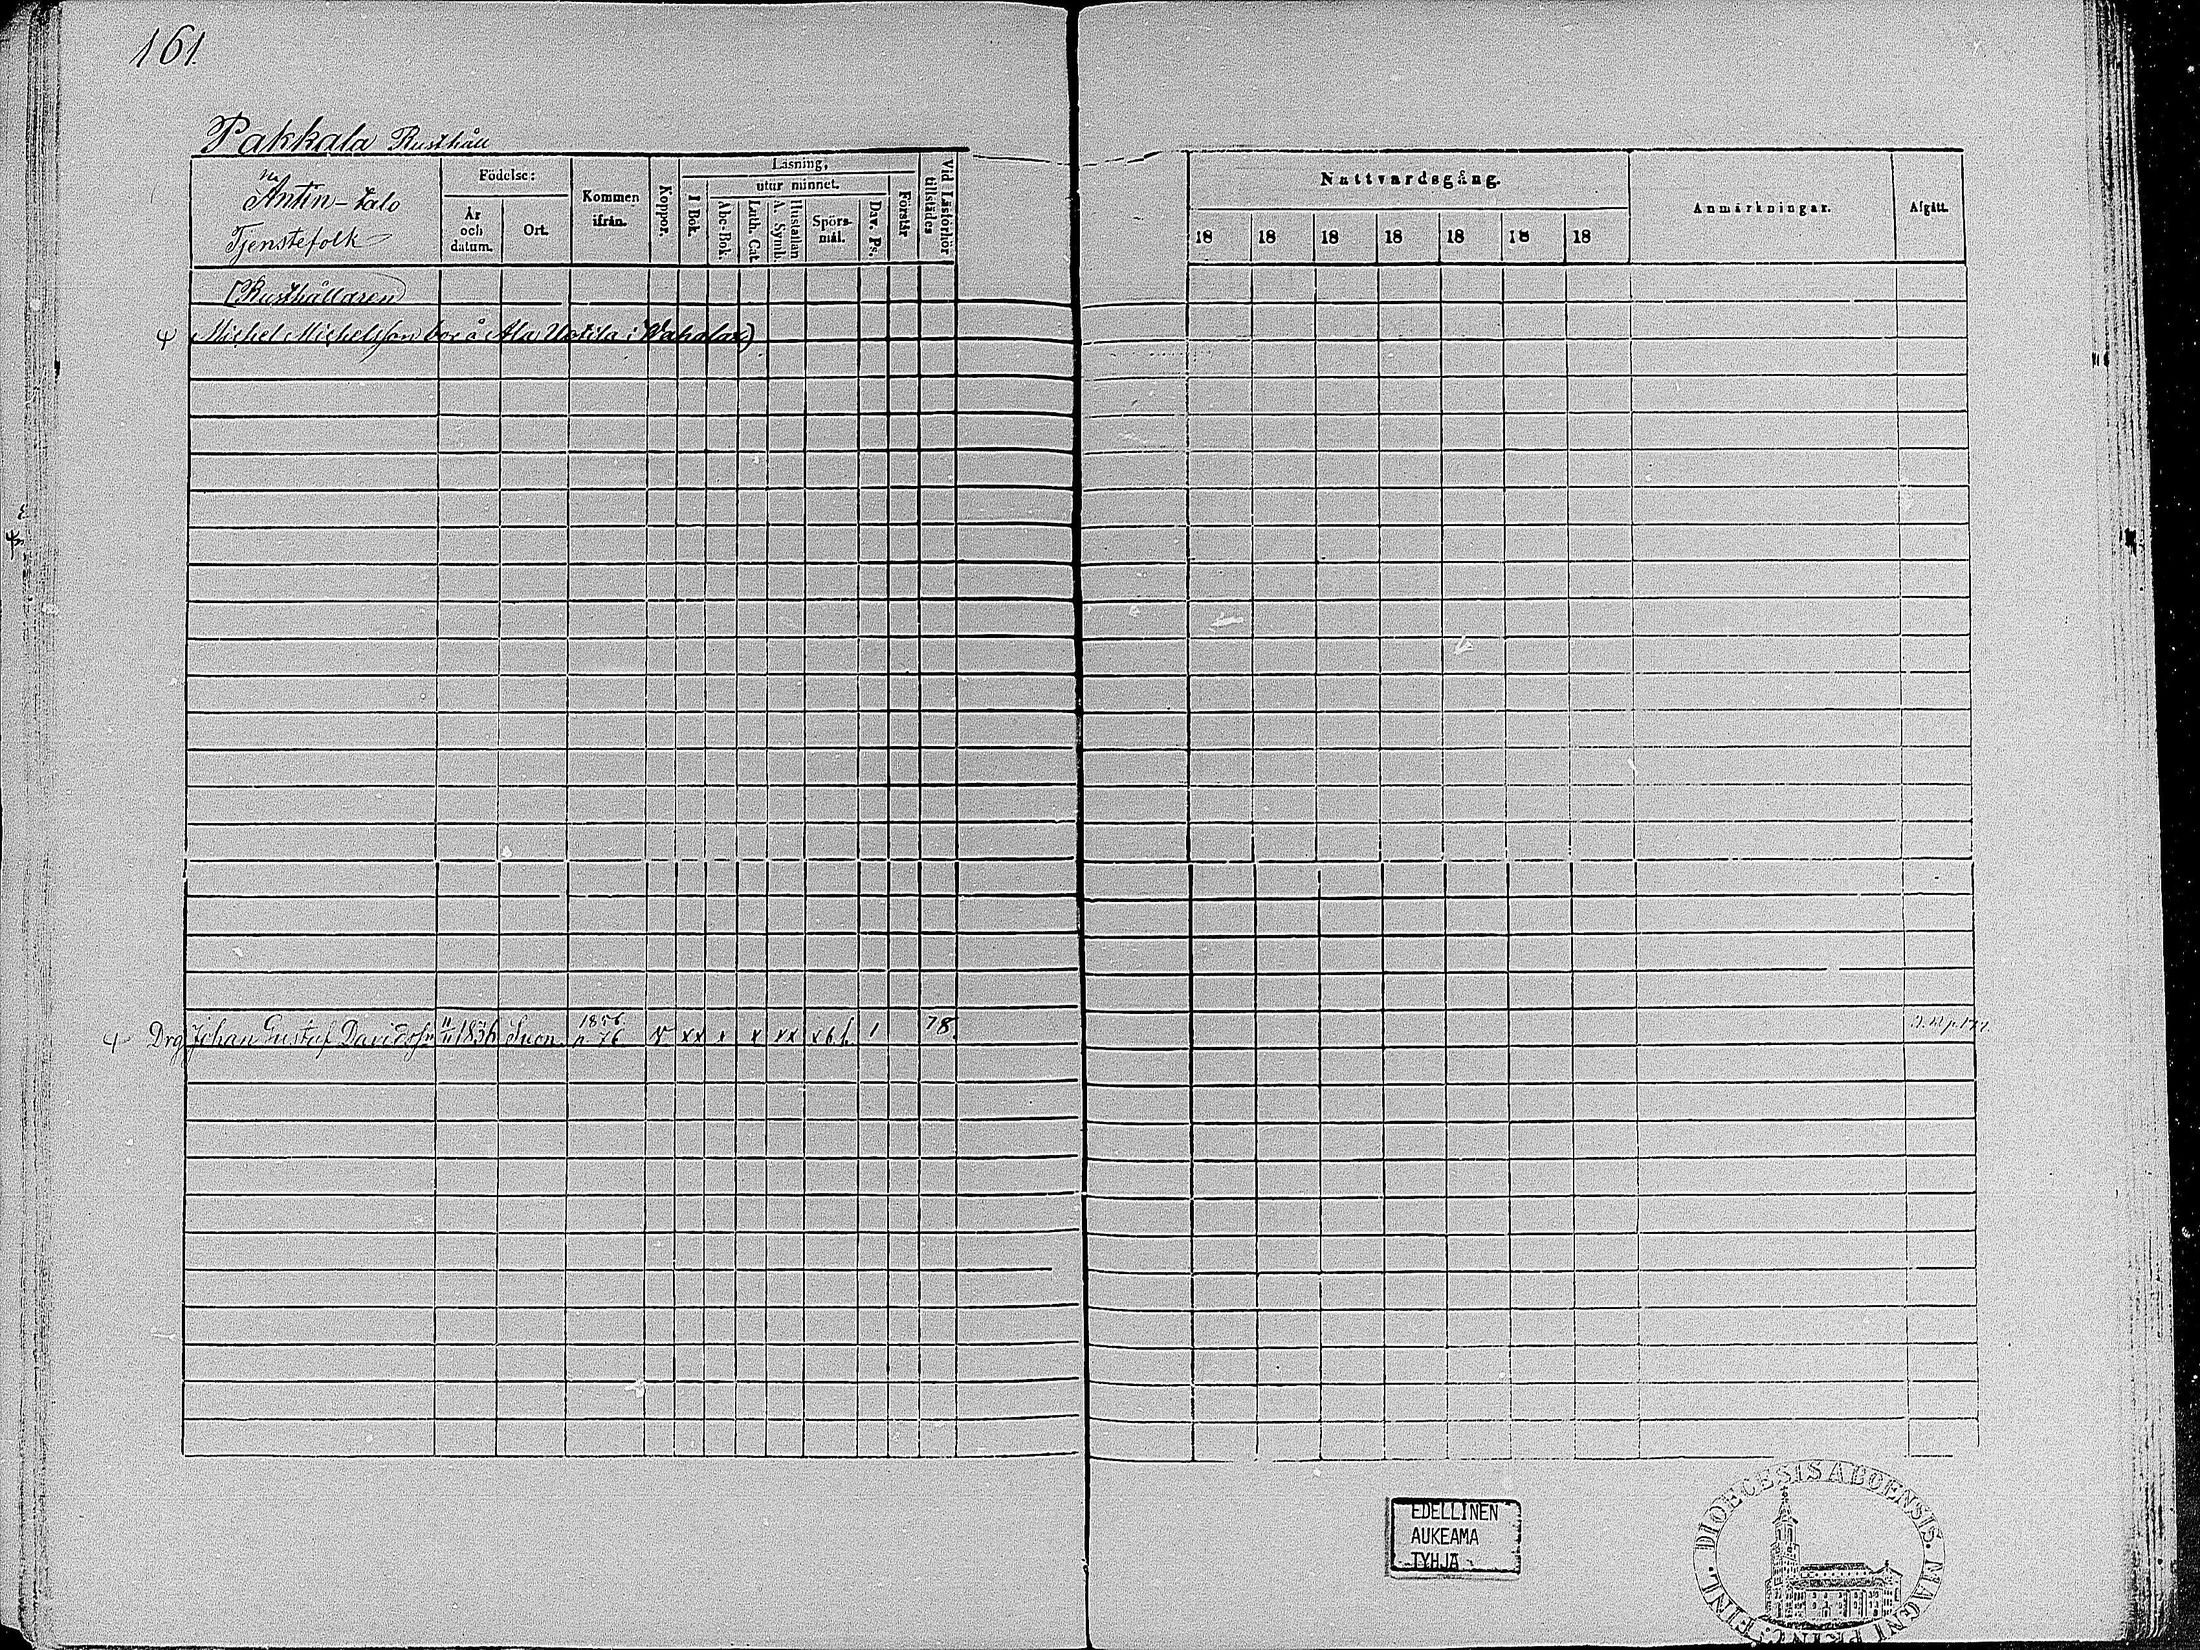 161.
Pakkala Rusthåll
Antin-talo
Tjenstefolk
Födelse:
År och datum.
Ort.
Kommen ifrån.
Koppor.
Läsning,
I Bok.
utur minnet.
Abc-Bok.
Luth. Cat.
A. Symb.
Hustaflan
Spörs-mål.
Dav. Ps.
Förstår
Vid Läsförhör tillstädes
Nattvardsgång.
18 18 18 18 18 18 18
Anmärkningar.
Afgått.
(Rusthållaren
Michel Michelsson bor å Ala Uotila i Wahalax)
Drg Johan Gustaf Davidss: 11/11 1836 Suon. 1856. p. 76 v xx x x xx xbf. 1 78.
EDELLINEN
AUKEAMA
TYHJÄ
DIOECESIS ABOENSIS. MAGNI PRINC: FINL.